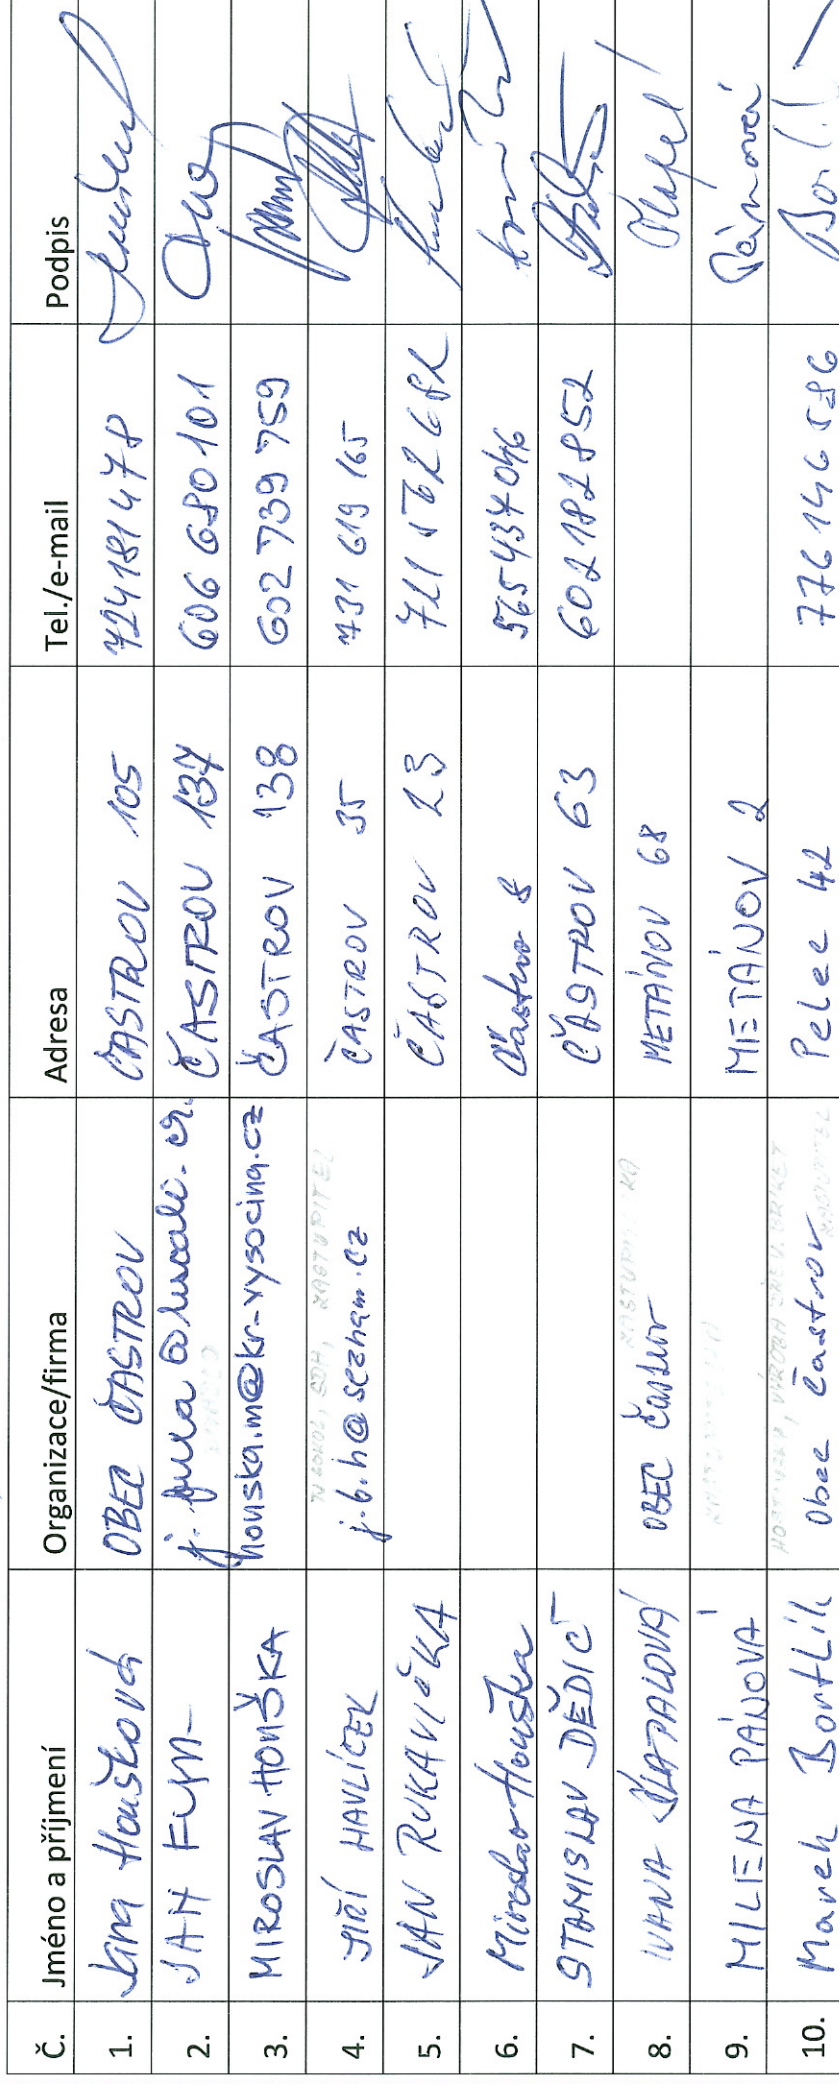 Č. Jméno a příjmení Organizace/firma Adresa Tel./e-mail Podpis
1. Jana Houšková OBEC ČASTROV ČASTROV 105 724181478
2. JAN ČASTROV 137 606 680 101
3. MIROSLAV HOUŠKA houska.m@kr-vysocina.cz ČASTROV 138 602 739 759
TJ SOKOL, SDH, ZASTUPITEL
4. JIŘÍ HAVLÍČEK j.b.h@seznam.cz ČASTROV 35 731 619 165
5. JAN RUKAVIČKA ČASTROV 23
6. Miroslav Houška Částrov 8 565434046
7. STANISLAV DĚDIČ ČÁSTROV 63 602182852
8. IVANA ŠLAPALOVÁ OBEC Častrov METÁNOV 68
9. MILENA PÁNOVÁ METÁNOV 2 Pánová
10. Marek Bortlík Obec Častrov Pelec 42 776 146 586